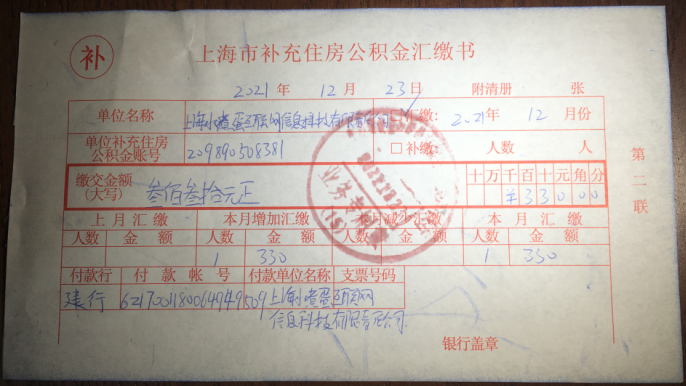 补 上海市补充住房公积金汇缴书
2021年 12月 23日 附清册 张
单位名称 上海小渣蛋互联网信息科技有限责任公司 汇缴: 2021年 12月份
单位补充住房公积金账号 209890508381 □补缴: 人数 人
缴交金额(大写) 叁佰叁拾元正 十万千百十元角分
¥33000
上月汇缴 本月增加汇缴 本月减少汇缴 本月汇缴
人数 金额 人数 金额 人数 金额 人数 金额
1 330 1 330
付款行 付款帐号 付款单位名称 支票号码
建行 6217001180064949509 上海小渣蛋互联网
信息科技有限责任公司
银行盖章
第二联
业务专用章